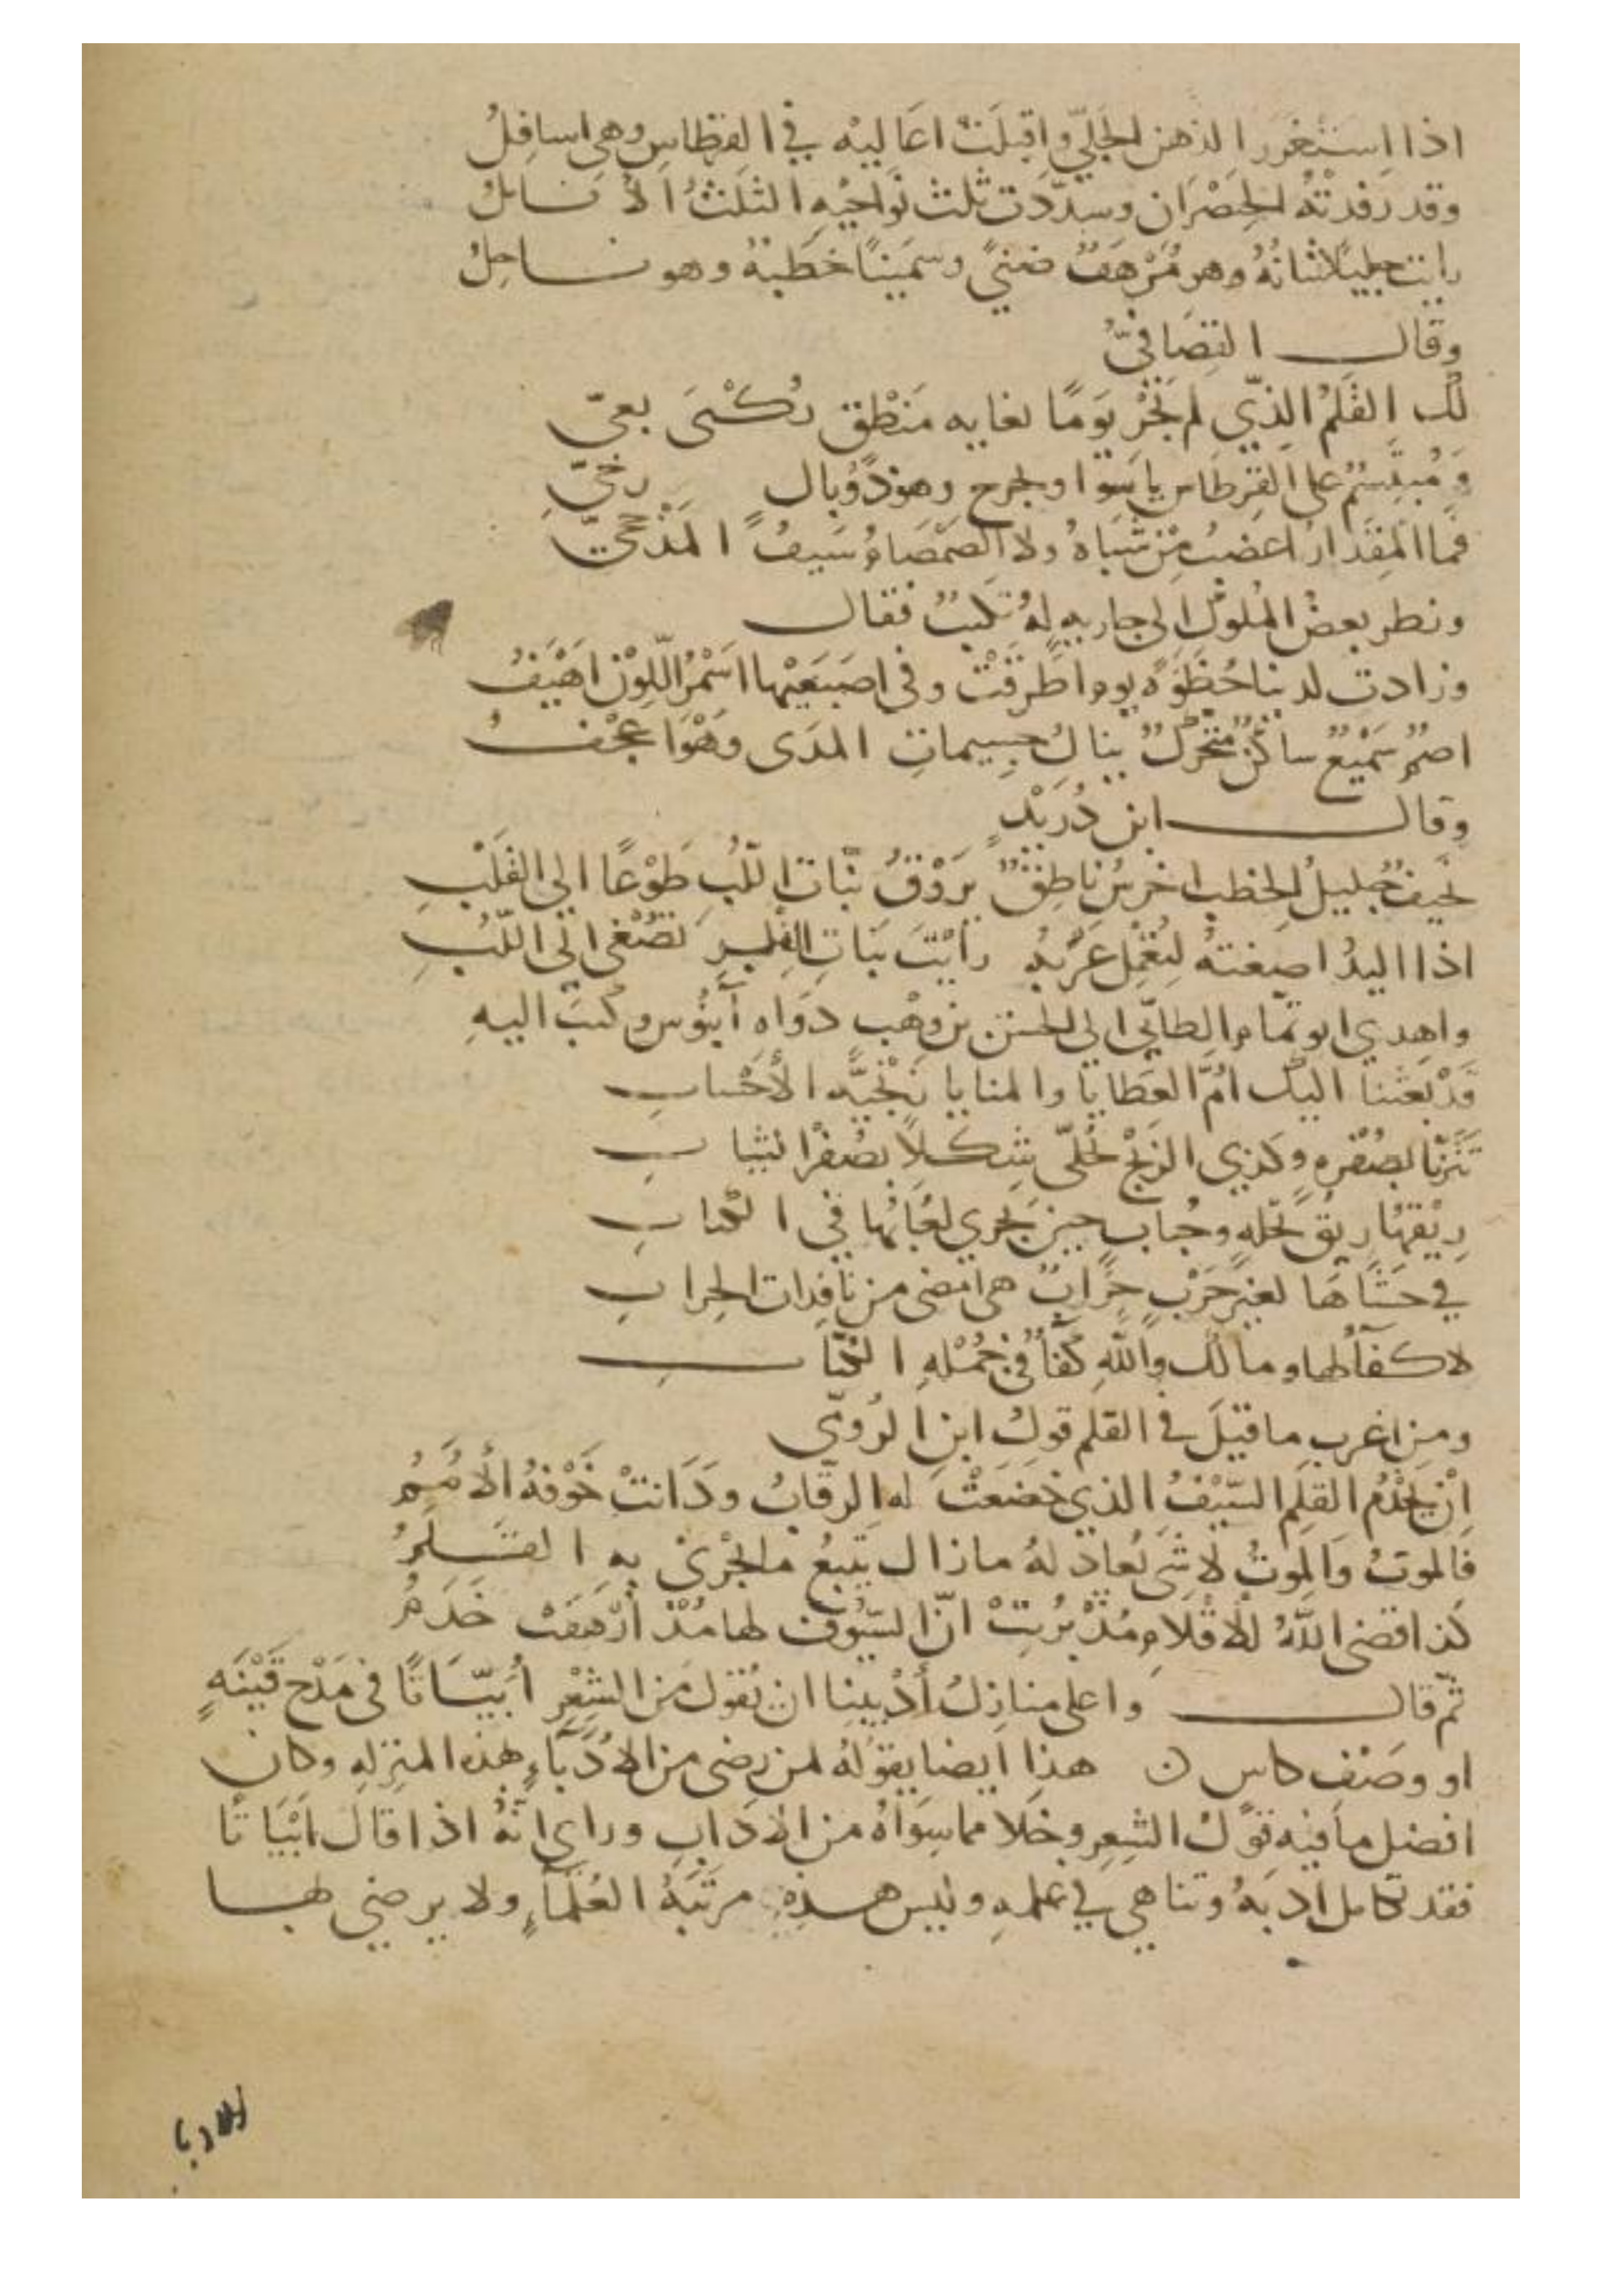 اذا استغزر الذهن الجلي واقبلت اعاليه في القرطاس وهي اسافل
وقد رفدته الخصران وسددت ثلث نواحيه الثلث الانامل
رايت جليلا شانه وهو مرهف ضنى وسمينا خطبه وهو ناحل
وقال
لك القلم الذي لم يجر يوما لغايه منطق بعي
ومبتسم على القرطاس ياسوا ويجرح وهو ذو بال رخي
فما المقدار اعضب من شباه ولا الصمصام سيف المذحجي
ونظر بعض الملوك الى جاريه له تكتب فقال
وزادت لدينا حظوة يوم اطرقت وفي اصبعيها اسمر اللون اهيف
اصم سميع ساكن متحرك ينال جسيمات المدى وهو اعجف
وقال ابن دريد
نحيف جليل الخطب اخرس ناطق يروق بنات اللب طوعا الى القلب
اذا اليد اصغته رأيت بنات القلب تصغي الى اللب
واهدي ابو تمام الطائي الى الحسن بن وهب دواه آبنوس وكتب اليه
قد بعثنا اليك ام العطايا والمنايا زنجيه الأحساب
بصفره وكذي الزنج تحلى شكلا بصفر الثياب
ريقها ريق نحله وحباب حين يجري لعابها في الكتاب
في حشاها لغير حرب حراب هي امضى من نافدات الحراب
لا كفأ لها وما لك والله كفأ في جمله الكتاب
ومن اغرب ما قيل في القلم قول ابن الرومي
ان يخدم القلم السيف الذي خضعت له الرقاب ودانت خوفه الأمم
فالموت والموت لا شي يعادله مازال يتبع ما يجرى به القلم
كذا قضى الله للأقلام مذ بريت ان السيوف لها مذ أرهفت خدم
ثم قال واعلى منازل أديبنا ان يقول من الشعر أبياتا في مدح قينه
او وصف كاس ن هذا ايضا يقوله لمن رضي من الادباء هذه المنزله وكان
افضل ما فيه قول الشعر وخلا مما سواه من الاداب وراي انه اذا قال ابياتا
فقد تكامل أدبه وتناهي في علمه وليس هذه مرتبة العلماء ولا يرضي لها